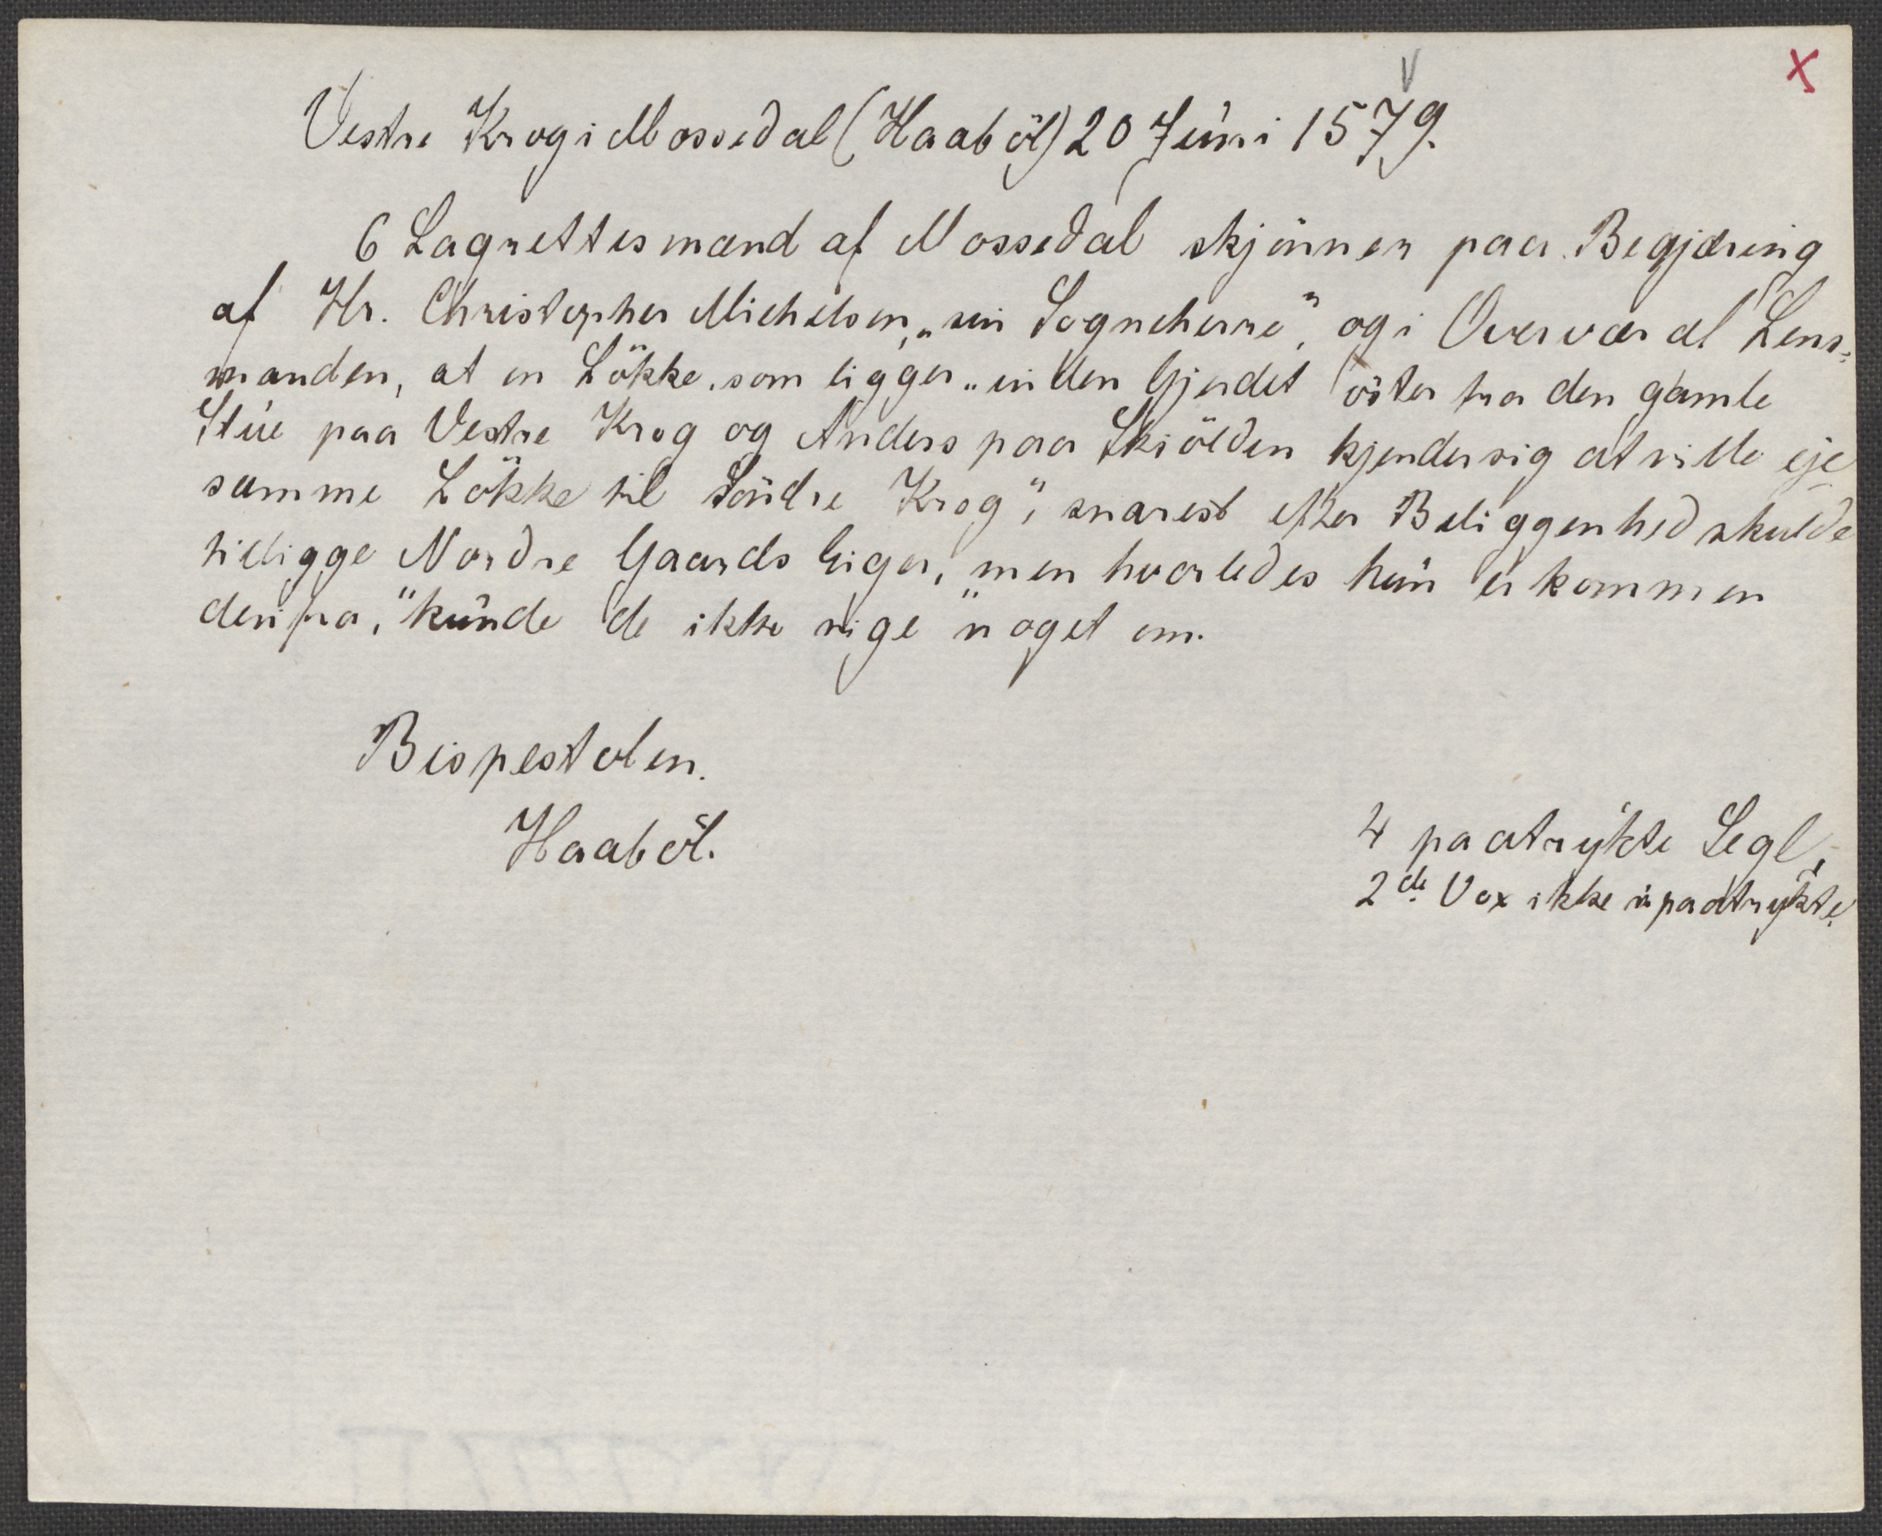 x
Vestre Krog i Mossedal (Haaböl) 20 Juni 1579.
6 Lagrettesmænd af Mossedal skjönner paa Begjæring
af Hr. Christopher Michelsen, „sin Sogneherre", og i Overvær af Lens-
manden, at en Lökke, som ligger „inden Gjerdet öster fra den gamle
Stue paa Vestre Krog og Anders paa Skiölden kjender sig at ville eje
samme Lökke til Söndre Krog", snarest efter Beliggenhed skulde
tilligge Nordre Gaards Eiger, „men hvorledes hun er kommen
derifra," kunde de ikke sige „noget om.
Bispestolen.
Haaböl.
4 paatrykte Segl,
2de Vox ikke paatrykte.